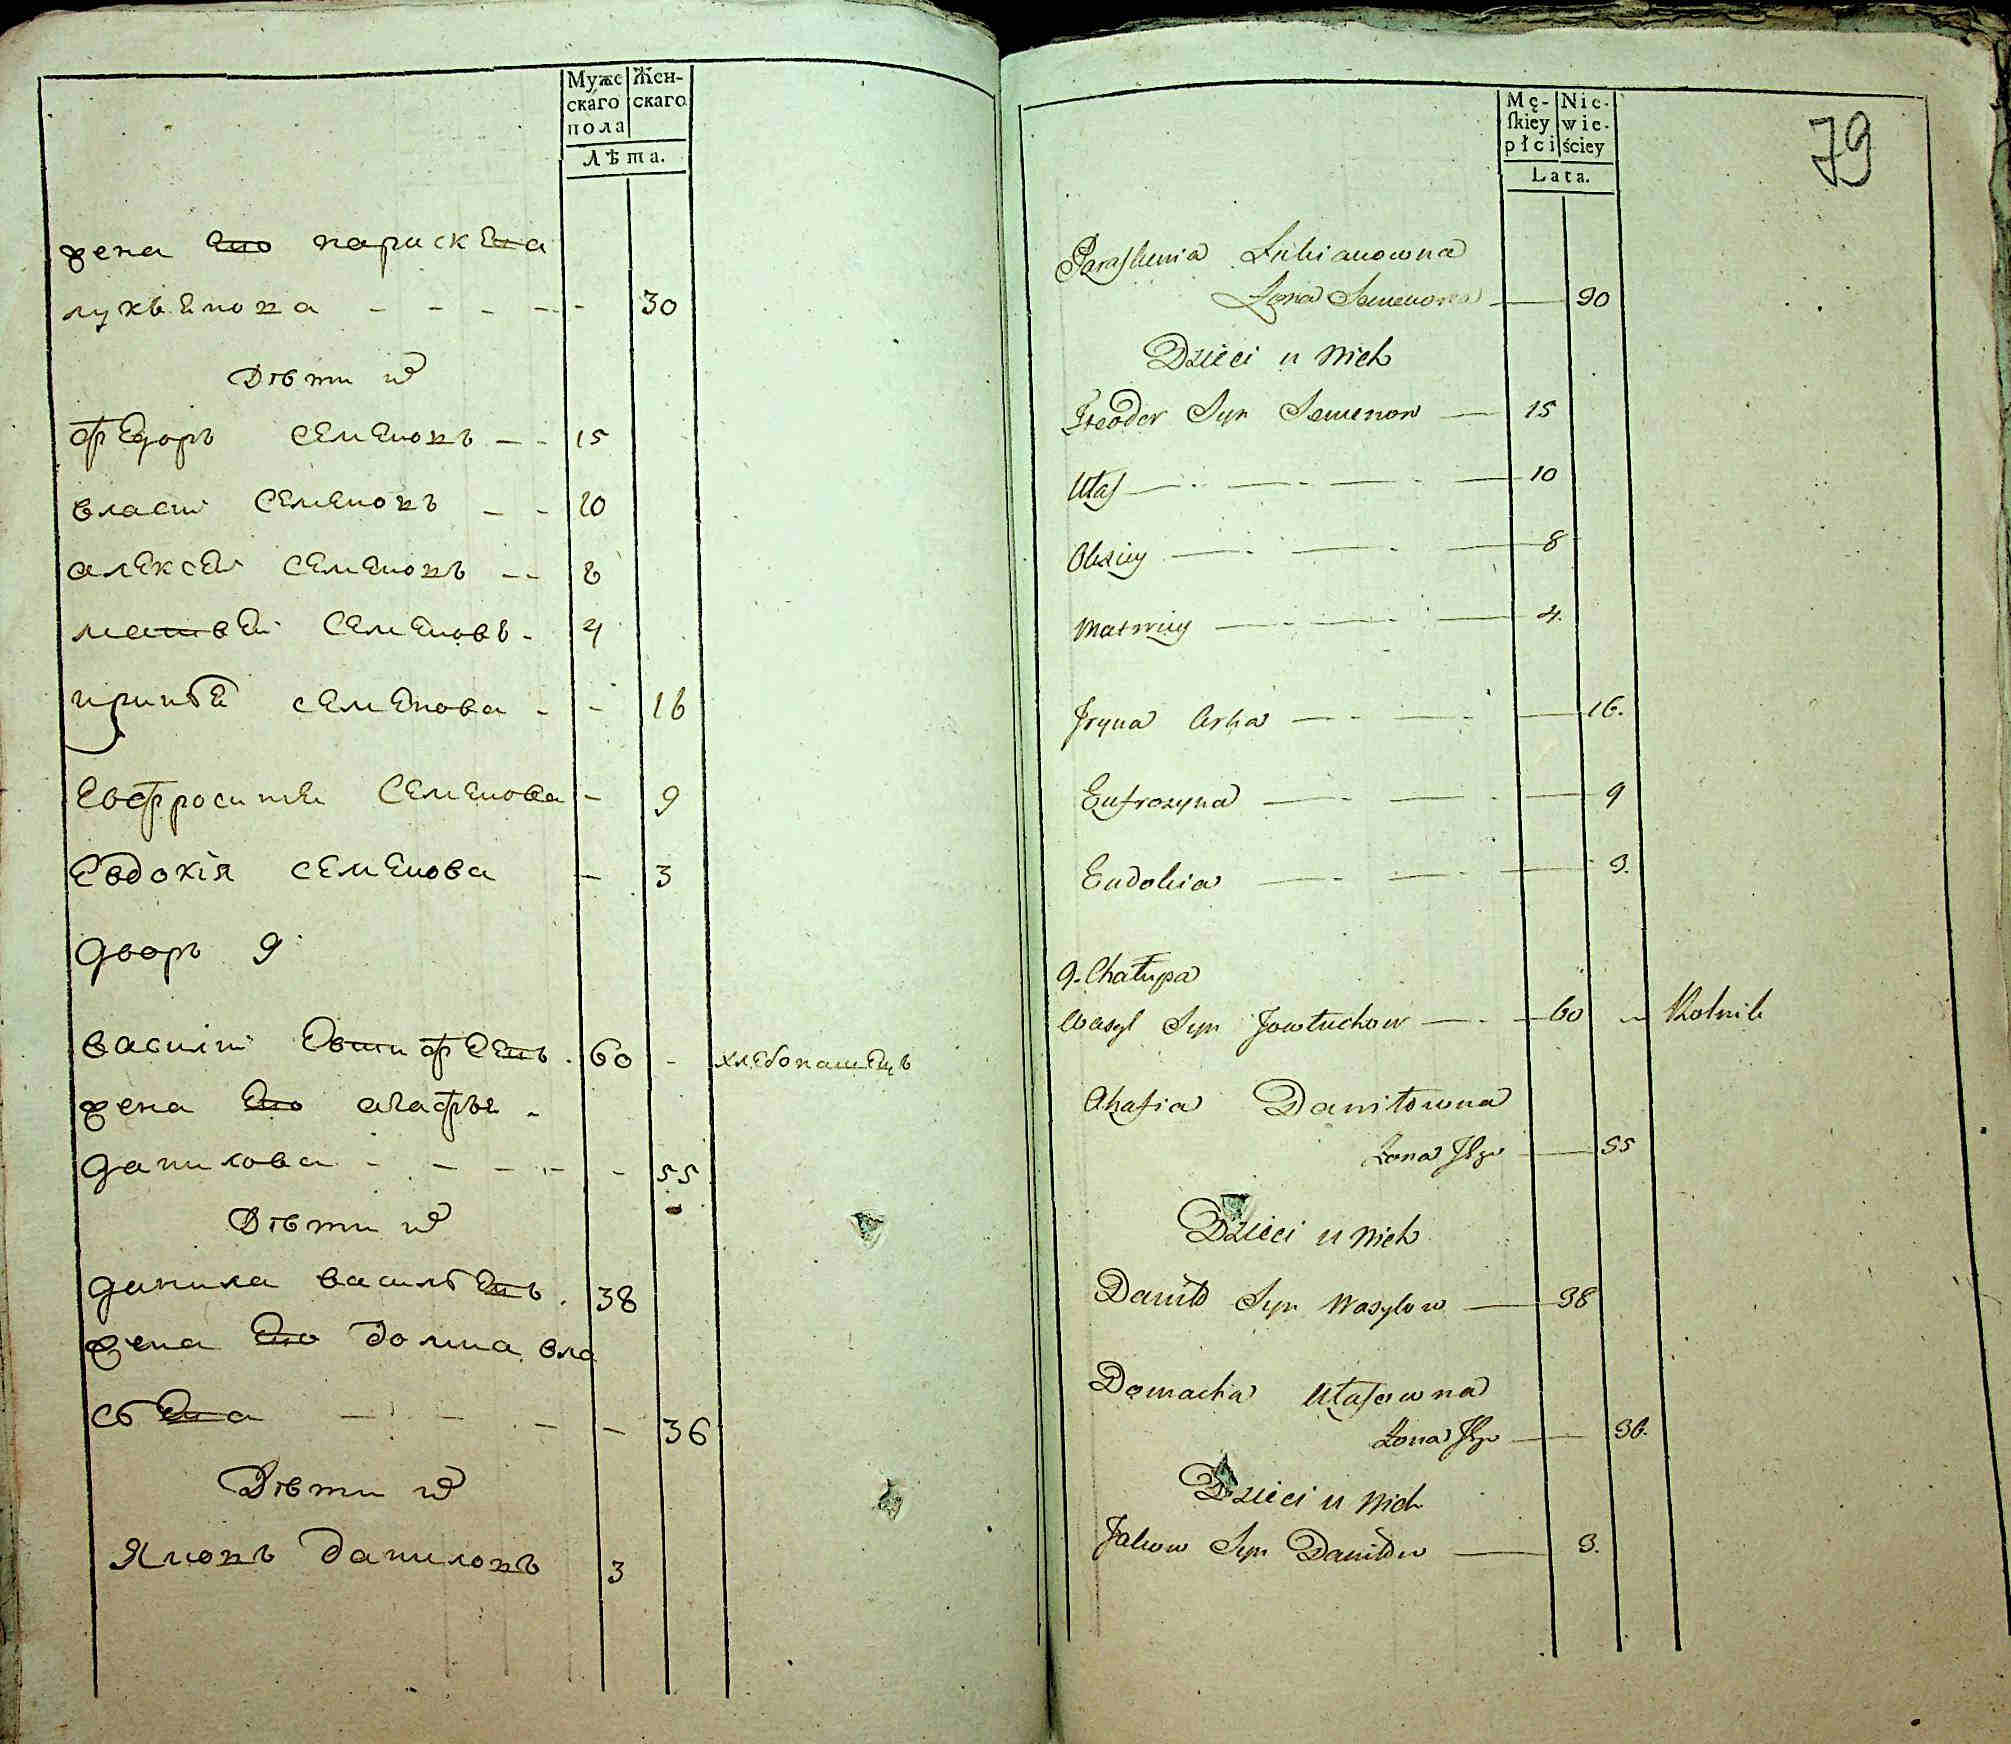 Муже Жен-
скаго скаго
пола
Лѣта.
жена ево параскева
лукьянова - - - - - 30
Дѣти ихъ
федоръ семеновъ - - 15
власъ семеновъ - - 10
алексеи семеновъ - - 8
матвеи семеновъ - 4
ирина семенова - - 16
евфросинья семенова - 9
Евдокія семенова - 3
дворъ 9
василии 60 - хлебопашецъ
жена ево агафья -
данилова - - - - - 55
Дѣти ихъ
данила васильевъ . 38
жена ево домна вла
сьева - - - - 36
Дѣти ихъ
Яковъ даниловъ 3
79
Mę- Nie-
ſkiey wie-
płci ściey
Lata.
Paraſkewia Łukianowna
Żona Semenowa — 30
Dzieci u Nich
Fteodor Syn Semenow — 15
Ułaſ — - — - — - — 10
Olexiey — - — - — 8
Matwiey — - — - — 4.
Jryna Corka — - — - — 16.
Eufrozyna — - — - — 9
Eudokia — - — - — 3.
9. Chałupa
Wasyl Syn Jowtuchow — - — 60 - Rolnik
Ahafia Daniłowna
Żona Jgo — 55
Dzieci u Nich
Daniło Syn Wasylow — 38
Domacha Ułaſowna
Żona Jgo — 36.
Dzieci u Nich
Jakow Syn Daniłow — 3.